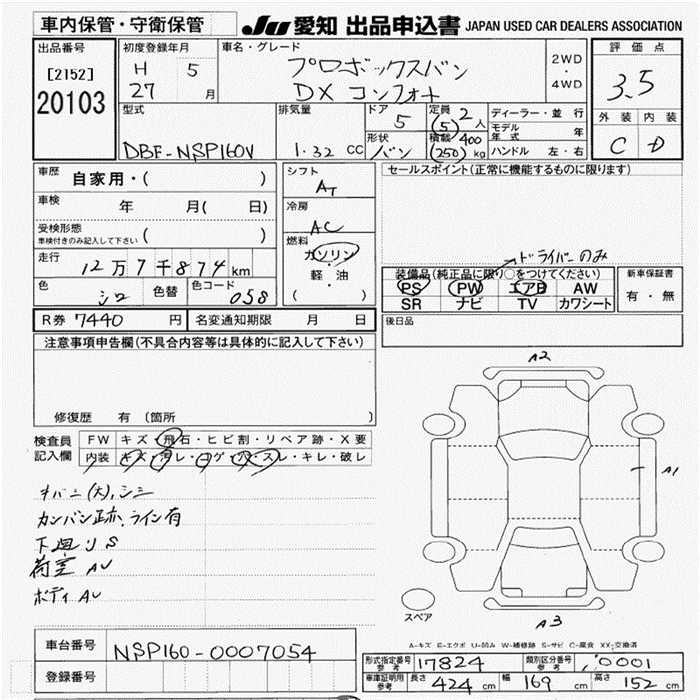 車内保管・守衛保管
JU 愛知 出品申込書 JAPAN USED CAR DEALERS ASSOCIATION
出品番号
[2152]
20103
初度登録年月
H 27 5月
車名・グレード
プロボックスバン
DX コンフォート
2WD
・
4WD
評価点
3.5
外装 内装
C D
型式
DBF-NSP160V
排気量
1.32 CC
ドア
5
形状
バン
定員 2
(5) 人
積載 400
(250) kg
ディーラー・並行
モデル年式 年
ハンドル 左・右
車歴 自家用・( )
車検 年 月( 日)
受検形態
車検付きのみ記入して下さい ( )
走行
12万7千874km
色 シロ 色替 色コード 058
シフト
AT
冷房
AC
燃料
ガソリン
・
軽・油
( )
セールスポイント(正常に機能するものに限ります)
ドライバーのみ
装備品(純正品に限り○をつけてください)
PS PW エアB AW
SR ナビ TV カワシート
新車保証書
有・無
R券 7440 円 名変通知期限 月 日
後日品
注意事項申告欄(不具合内容等は具体的に記入して下さい)
修復歴 有 〔箇所
検査員記入欄
FW キズ・飛石・ヒビ割・リペア跡・X要
内装 キズ・汚レ・コゲ・穴・スレ・キレ・破レ
カンバン跡、ライン有
下廻りS
荷室 AU
ボディ AU
A2
A1
A3
スペア
A-キズ E-エクボ U-凹み W-補修跡 S-サビ C-腐食 XX-交換済
車台番号 NSP160-0007054
登録番号
形式指定番号 参考 17824 類別区分番号 参考 0001
車庫証明用 参考 長さ 424 cm 幅 169 cm 高さ 152 cm